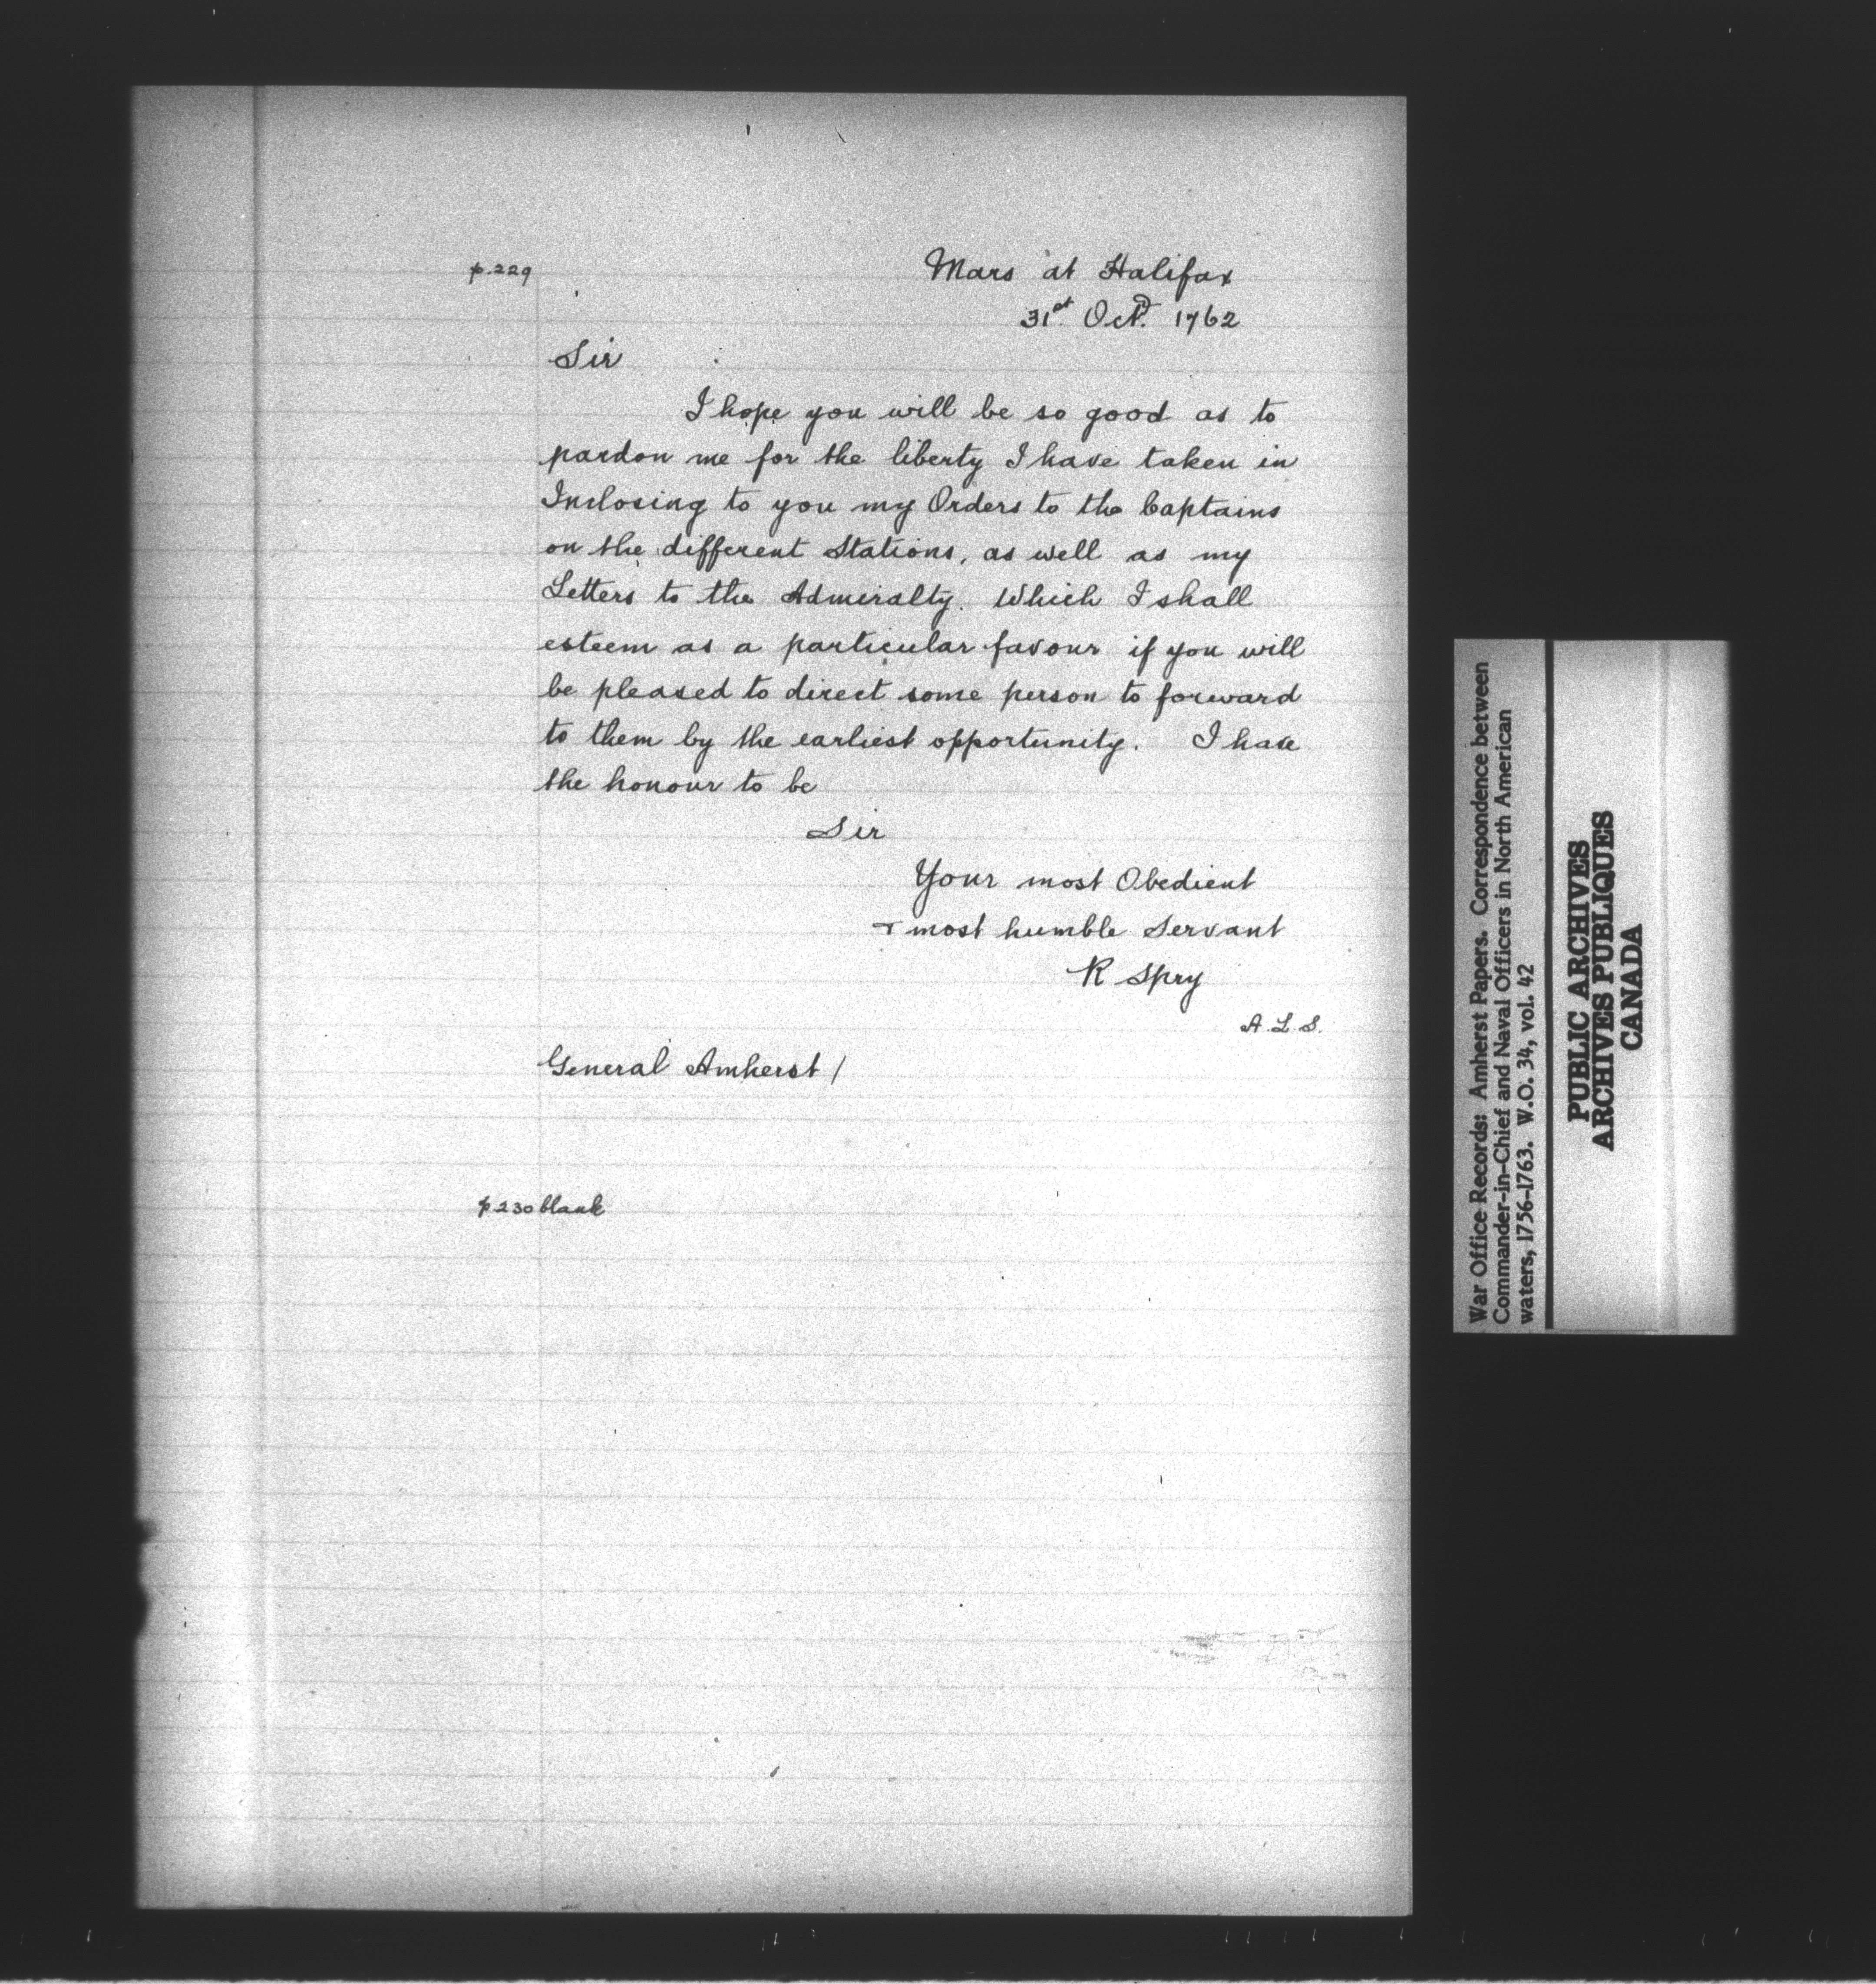 p. 229
Mars at Halifax
31st Octr. 1762
Sir
I hope you will be so good as to
pardon me for the liberty I have taken in
Inclosing to you my Orders to the Captains
on the different Stations, as well as my
Letters to the Admiralty. Which I shall
esteem as a particular favour if you will
be pleased to direct some person to forward
to them by the earliest opportunity. I have
the honour to be
Sir
Your most Obedient
& most humble Servant
R Spry
A. L. S.
General Amherst /
p 230 blank
War Office Records: Amherst Papers. Correspondence between
Commander-in-Chief and Naval Officers in North American
waters, 1756-1763. W.O. 34, vol. 42
PUBLIC ARCHIVES
ARCHIVES PUBLIQUES
CANADA